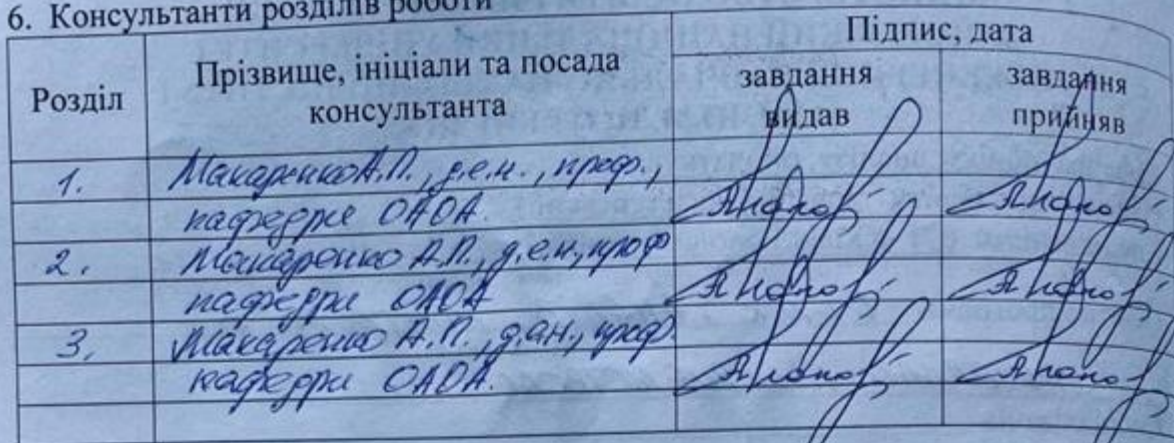 6. Консультанти розділів роботи
Розділ
Прізвище, ініціали та посада
консультанта
Підпис, дата
завдання
видав
завдання
прийняв
1.
Макаренко А.П., д.е.н., проф.,
кафедри ОАОА.
2.
Макаренко А.П., д.е.н., проф
кафедри ОАОА
3.
Макаренко А.П., д.е.н., проф.
кафедри ОАОА.